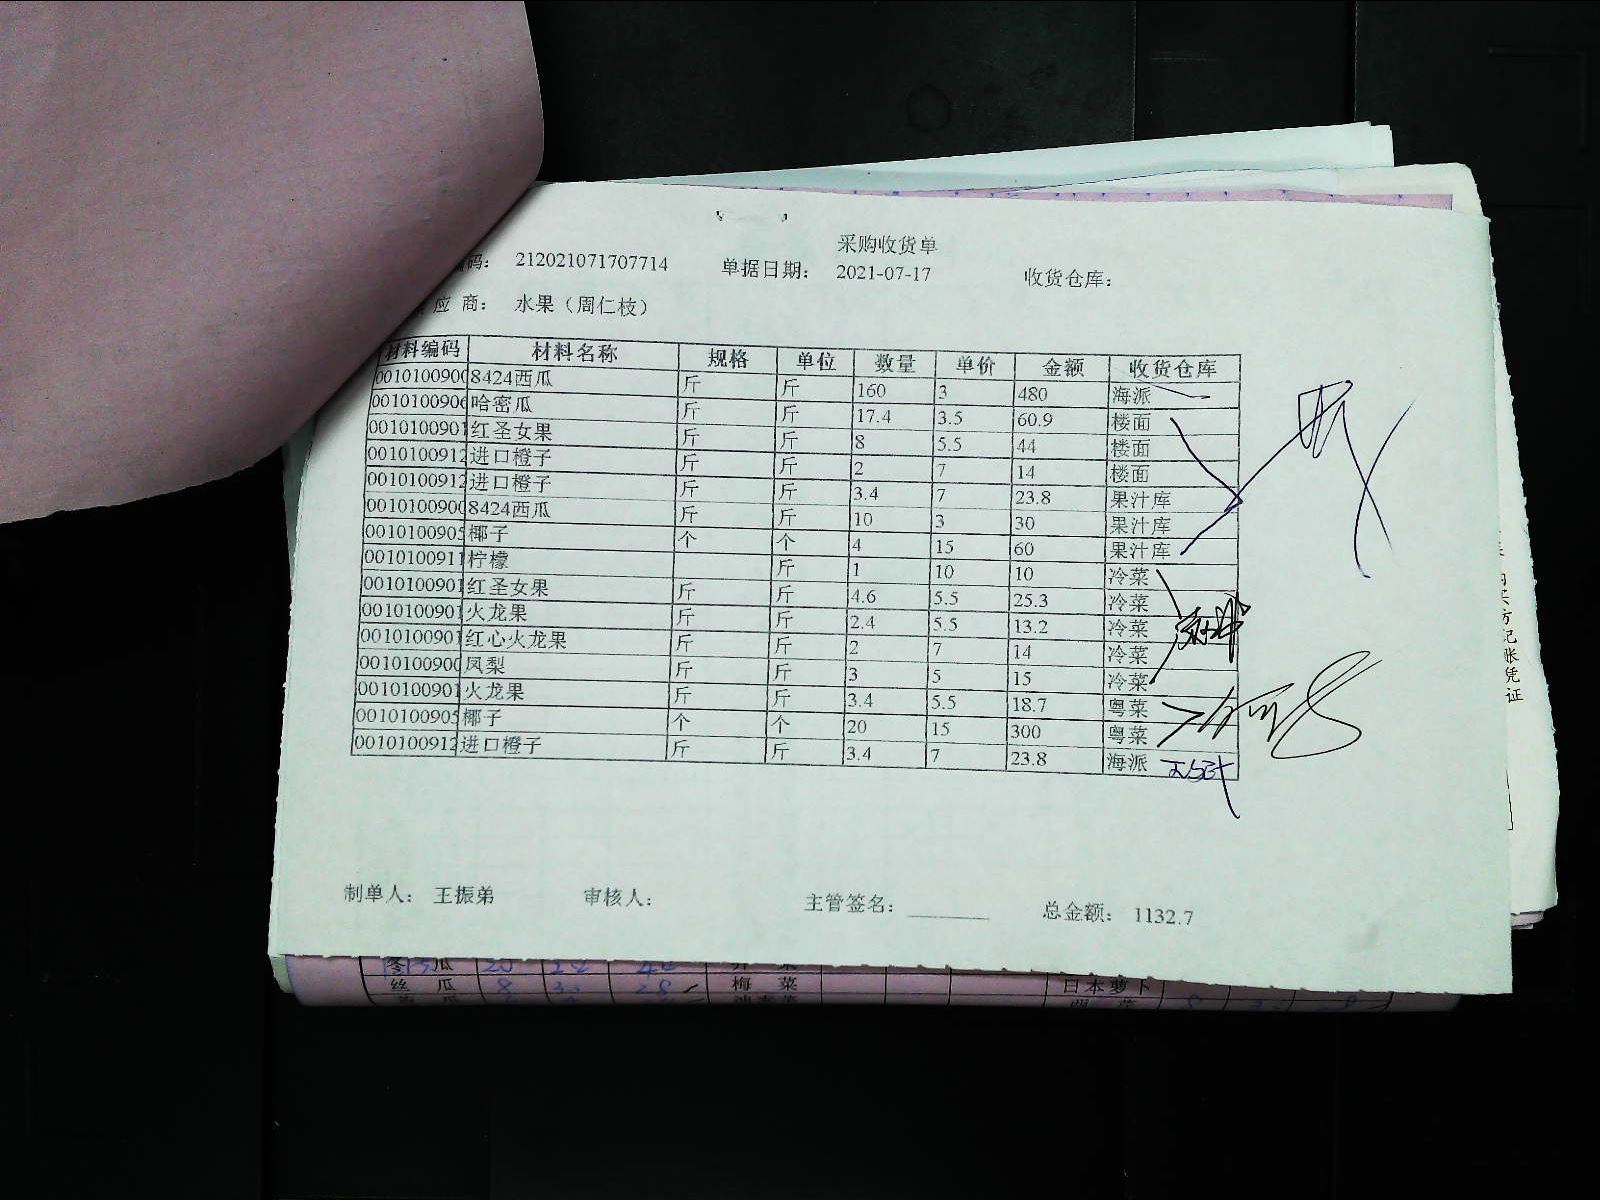 采购收货单
编码: 212021071707714 单据日期: 2021-07-17 收货仓库:
应 商: 水果（周仁枝）
材料编码 材料名称 规格 单位 数量 单价 金额 收货仓库
0010100900 8424西瓜 斤 斤 160 3 480 海派
0010100906 哈密瓜 斤 斤 17.4 3.5 60.9 楼面
0010100901 红圣女果 斤 斤 8 5.5 44 楼面
0010100912 进口橙子 斤 斤 2 7 14 楼面
0010100912 进口橙子 斤 斤 3.4 7 23.8 果汁库
0010100900 8424西瓜 斤 斤 10 3 30 果汁库
0010100905 椰子 个 个 4 15 60 果汁库
0010100911 柠檬 斤 1 10 10 冷菜
0010100901 红圣女果 斤 斤 4.6 5.5 25.3 冷菜
0010100901 火龙果 斤 斤 2.4 5.5 13.2 冷菜
0010100901 红心火龙果 斤 斤 2 7 14 冷菜
0010100900 凤梨 斤 斤 3 5 15 冷菜
0010100901 火龙果 斤 斤 3.4 5.5 18.7 粤菜
0010100905 椰子 个 个 20 15 300 粤菜
0010100912 进口橙子 斤 斤 3.4 7 23.8 海派
制单人: 王振弟 审核人: 主管签名: 总金额: 1132.7
丝 瓜 8 梅 菜 日本萝卜
购买方记账凭证